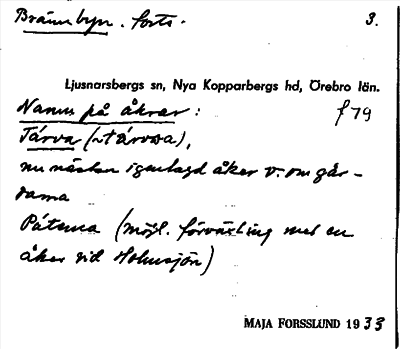 Brännbyn. forts. 3.
Ljusnarsbergs sn, Nya Kopparbergs hd, Örebro län.
Namn på åkrar: f79
Tårva (~ tårvsa),
nu nästan igenlagd åker v. om går-
darna
Påtorna (möjl. förväxling med en
åker vid Holmsjön)
MAJA FORSSLUND 1933